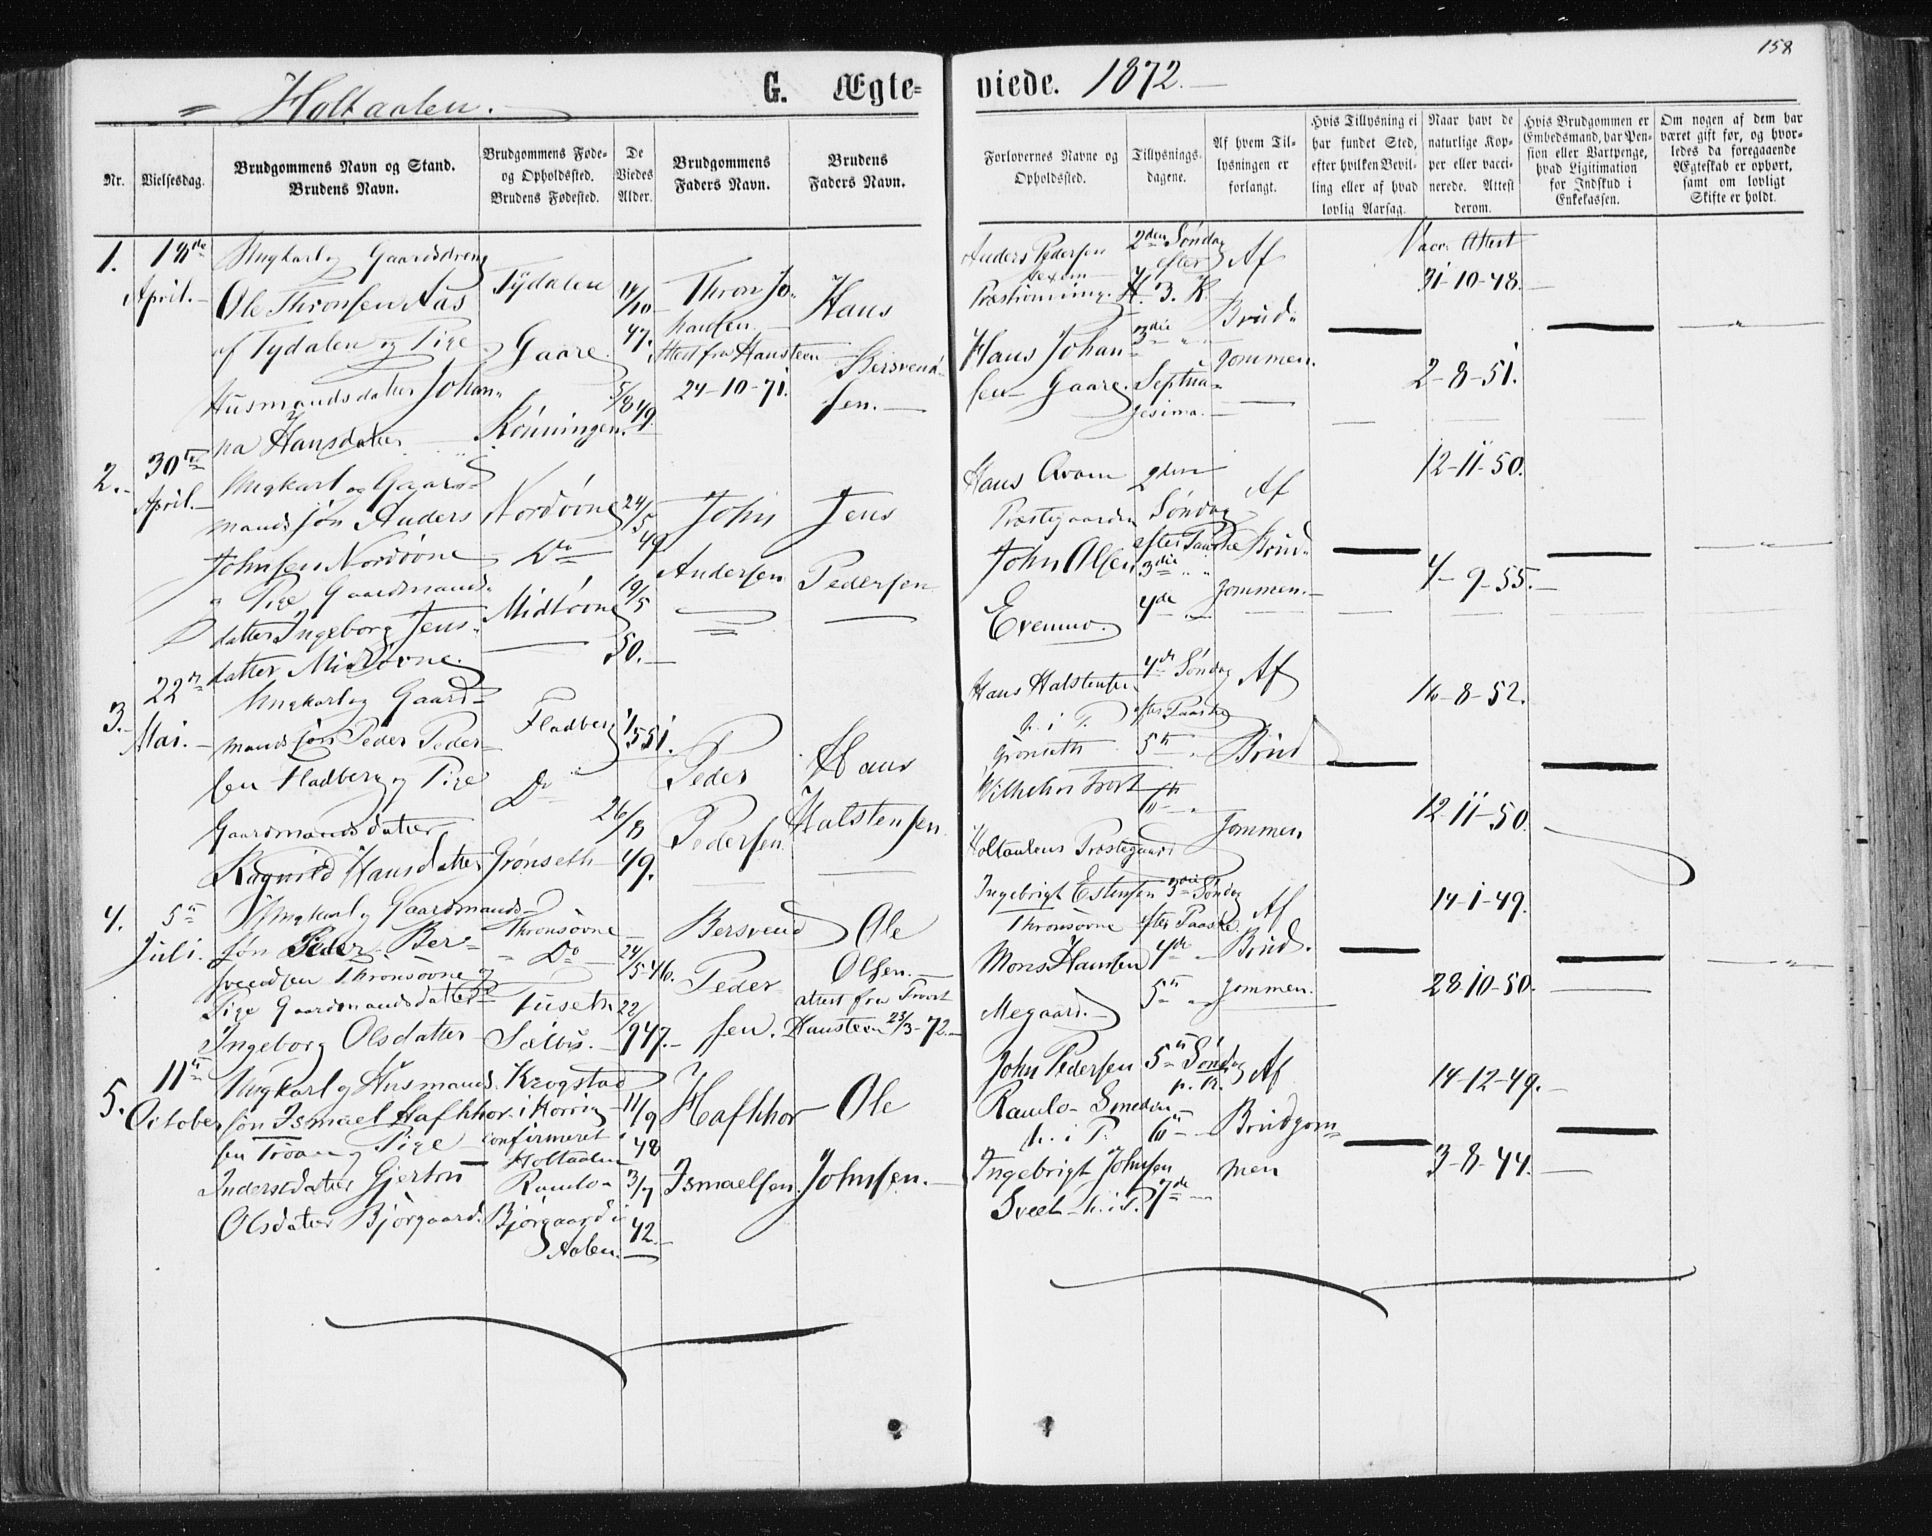 158
Holtaalen.
G. Ægte=
viede. 1872.
Nr.
Vielsesdag.
Brudgommens Navn og Stand.
Brudens Navn.
Brudgommens Føde=
og Opholdssted.
Brudens Fødested.
De
Viedes
Alder.
Brudgommens
Faders Navn.
Brudens
Faders Navn.
Forlovernes Navne og
Opholdssted.
Tillysnings-
dagene.
Af hvem Til-
lysningen er
forlangt.
Hvis Tillysning ei
har fundet Sted,
efter hvilken Bevil-
ling eller af hvad
lovlig Aarsag.
Naar havt de
naturlige Kop-
per eller vacci-
nerede. Attest
derom.
Hvis Brudgommen er
Embedsmand, har Pen-
sion eller Vartpenge,
hvad Legitimation
for Indskud i
Enkekassen.
Om nogen af dem har
været gift før, og hvor-
ledes da foregaaende
Ægteskab er ophørt,
samt om lovligt
Skifte er holdt.
1.
18de
April.
Ungkarl og Gaardsdreng
Ole Thronsen Aas
af Tydalen og Pige
Husmandsdatter Johan-
na Hansdatter
Tydalen
Gaare
Rønningen.
11/10
47.
5/8 49.
Thron Jo-
hansen
Attest fra Hansteen
24-10-71.
Hans
Bersvend-
sen.
Anders Pedersen
Hans Johan-
sen Gaare.
2den Søndag
efter
H. 3. K.
3die
Septua-
gesima.
Af
Brud-
gommen.
Vacc. Attest
31-10-48.
2-8-51.
2.
30te
April.
Ungkarl og Gaard-
mandssøn Anders
Johnsen Nordøvne
og Pige Gaardmands-
datter Ingeborg Jens-
datter Midtøvne.
Nordøvne
Do
Midtøvne
24/5
49
19/5
50.
John
Andersen
Jens
Pedersen
Hans
Præstegaarden
John Olsen
Evenmo.
2den
Søndag
efter Paaske
3die
4de
Af
Brud-
gommen.
12-11-50.
4-9-55.
3.
22de
Mai.
Ungkarl og Gaard-
mandssøn Peder Peder-
sen Fladberg og Pige
Gaardmandsdatter
Ragnild Hansdatter
Fladberg
Do
Grønseth
1/5 51.
26/8
49.
Peder
Pedersen
Hans
Halstensen
Hans Halstensen
h. i P.
Grønseth
Wilhelm
Holtaalens Præstegaard
4de Søndag
efter Paaske
5te
6te
Af
Brud
gommen
16-8-52.
12-11-50.
4.
5te
Juli.
Ungkarl og Gaardmands-
søn Peder Ber-
svendsen Thronsøvne og
Pige Gaardmandsdatter
Ingeborg Olsdatter
Thronsøvne
Do
Tuseth
Selbu.
24/5 46.
22/9 47.
Bersvend
Peder
sen.
Ole
Olsen.
attest fra Provst
Hansteen 23/3-72.
Ingebrigt Estensen
Thronsøvne
Mons Hansen
Megaard.
3die Søndag
efter Paaske
4de
5te
Af
Brud-
gommen.
14-1-49.
28-10-50.
5.
11te
October
Ungkarl og Husmands
søn Ismael Hafhhor-
sen Troan og Pige
Inderstdatter Gjertru
Olsdatter Bjørgaard.
Krogstad
i Horrig
confirmeret i
Holtaalen
Ramlo-
Bjørgaard i
Aalen.
11/9
48
3/7
42.
Hafhhor
Ismaelsen.
Ole
Johnsen.
John Pedersen
Ramlo-
h. i P.
Ingebrigt Johnsen
h. i P.
5te Søndag
p. P.
6te
7de
Af
Brudgom-
men
14-12-49.
3-8-44.